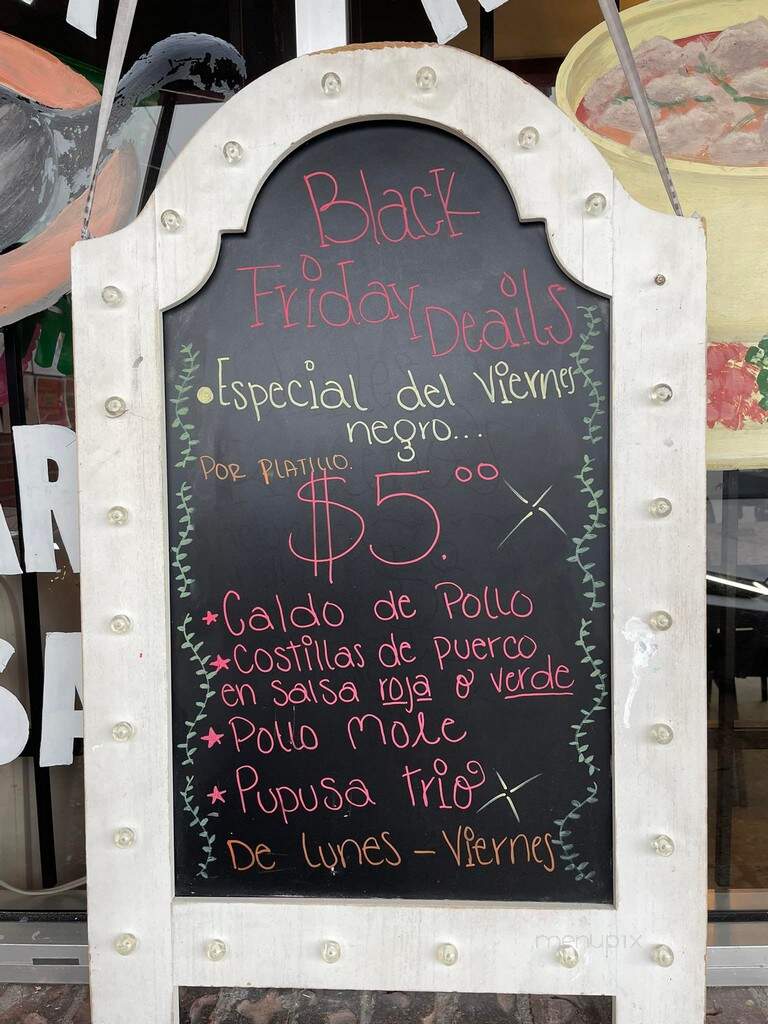 Black
Friday Deails
•Especial del Viernes
negro...
POR PLATILLO.
$5.00
★Caldo de Pollo
★Costillas de puerco
en salsa roja o verde
★Pollo Mole
★Pupusa trio
De lunes - Viernes
menupix